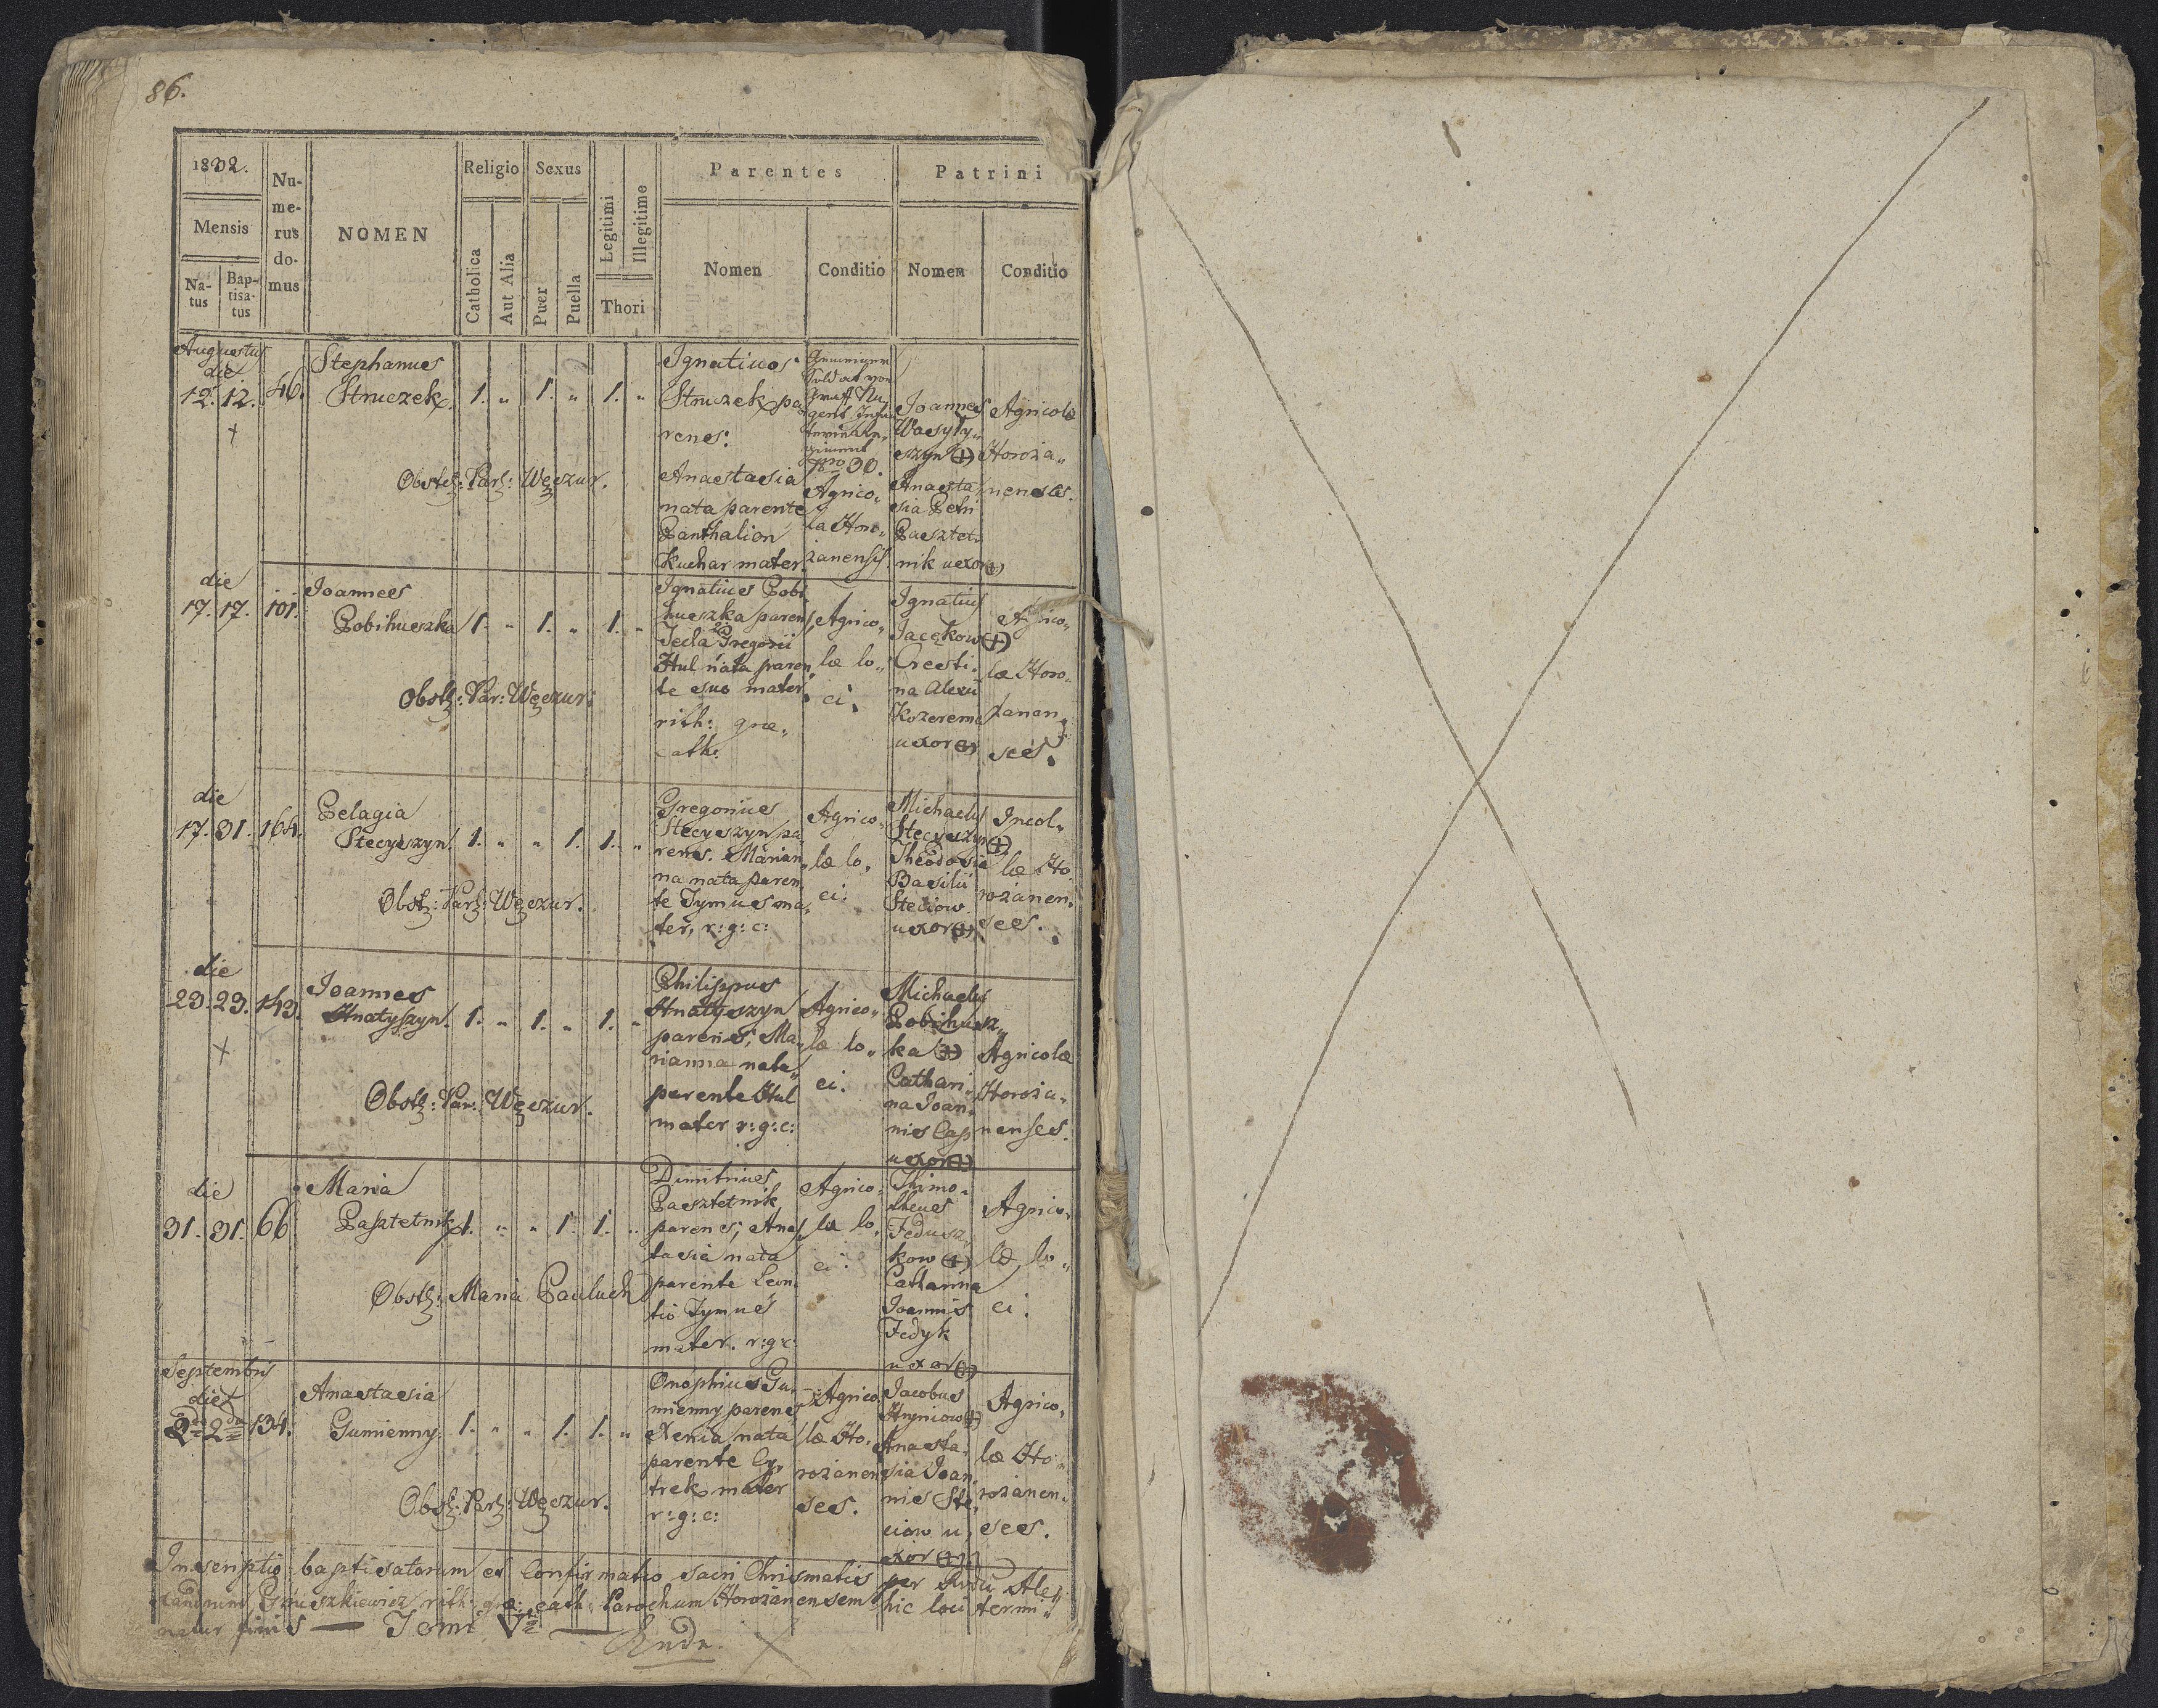 86.
1832.
Mensis
Na-
tus
Bap-
tisa-
tus
Nu-
me-
rus
do-
mus
NOMEN
Religio
Catholica
Aut Alia
Sexus
Puer
Puella
Legitimi
Illegitime
Thori
Parentes
Nomen
Conditio
Patrini
Nomen
Conditio
Augustus
die
12. 12. 46.
Stephanus
Struczek. 1. „ 1. „ 1. „
Obstz: Parz: Węszur.
Ignatius
Struczek pa
rens:
Anastasia
nata parente
Panthalion
Kuchar mater.
Soldat von
Graff Nu
gent Infan
terie Re„
giment
Nro 30.
Agrico„
la Horo„
żanensis.
Joannes
Wasyly„
szyn (+)
Anasta
sia Petri
Pasztet„
nik uxor (+)
Agricolæ
Horoża„
nenses.
die
17. 17. 101.
Joannes
Pobihuszka 1. „ 1. „ 1. „
Obstz: Par: Węszur:
Ignatius Pobi
huszka parens,
Tecla Gregorii
Hul nata paren„
te suo mater
rith: græ„
cath:
Agrico„
læ lo„
ci.
Ignatius
Jackow (+)
Cresti„
na Alexii
Kozerema
uxor (+)
Agrico„
læ Horo„
żanen„
ses.
die
17. 31. 164.
Pelagia
Stecyszyn. 1. „ „ 1. 1. „
Obstz: Parz: Węszur.
Gregorius
Stecyszyn pa
rens. Marian„
na nata paren
te Tymus ma„
ter, r: g: c:
Agrico„
læ lo„
ci.
Michael
Stecyszyn (+)
Theodosia
Basilii
Steciow
uxor (+)
Incol„
læ Ho
rożanen„
ses.
die
23. 23. 143.
Joannes
Hnatyszyn. 1. „ 1. „ 1. „
Obstz: Par: Węszur.
Philippus
Hnatyszyn
parens; Ma„
rianna nata
parente Hul
mater r: g: c:
Agrico„
læ lo„
ci.
Michael
Pobihusz„
ka (+)
Cathari„
na Joan„
nis Cap
uxor (+)
Agricolæ
Horoża„
nenses.
die
31. 31. 66
Maria
Pasztetnik 1. „ „ 1. 1. „
Obstz: Maria Pauluch
Dimitrius
Pasztetnik
parens; Anas„
tasia nata
parente Leon
tio Tymus
mater. r: g: c:
Agrico„
læ lo„
ci.
Thimo„
theus
Fedusz„
kow (+)
Catharina
Joannis
Fedyk
uxor (+)
Agrico„
læ lo„
ci.
Septembris
die
2da 2da 134.
Anastasia
Gumienny. 1. „ „ 1. 1. „
Obstz: Parz: Węszur.
Onophrius Gu„
mienny parens
Xenia nata
parente Cy„
trek mater
r: g: c:
Agrico
læ Ho„
rożanen
ses.
Jacobus
Hryniow (+)
Anasta„
sia Joan„
nis Ste„
ciow u„
xor (+)
Agrico„
læ Ho„
rożanen„
ses.
Inscriptio baptisatorum et Confirmatio sacri Chrismatis per Rvdū Ale„
xandrum rith: græ: cath: Parochum Horożanensem hic loci termi„
natur finis — Tomi V —
Ende.